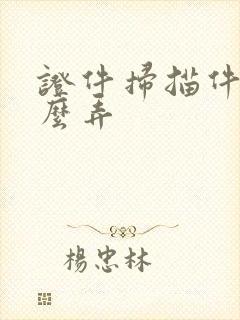 證件掃描件
麼弄
楊忠林